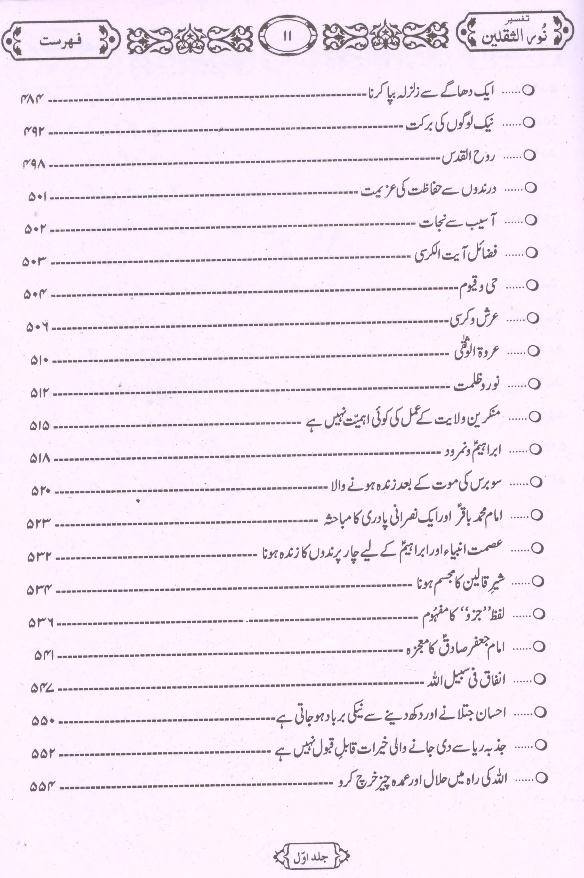 تفسیر
نور الثقلین
۱۱
فہرست
ایک دھاگے سے زلزلہ بپا کرنا ۴۸۴
نیک لوگوں کی برکت ۴۹۲
روح القدس ۴۹۸
درندوں سے حفاظت کی عزیمت ۵۰۱
آسیب سے نجات ۵۰۲
فضائل آیت الکرسی ۵۰۳
حی و قیوم ۵۰۴
عرش و کرسی ۵۰۶
عروۃ الوثقیٰ ۵۱۰
نور و ظلمت ۵۱۲
منکرین ولایت کے عمل کی کوئی اہمیّت نہیں ہے ۵۱۵
ابراہیمؑ و نمرود ۵۱۸
سو برس کی موت کے بعد زندہ ہونے والا ۵۲۰
امام محمد باقرؑ اور ایک نصرانی پادری کا مباحثہ ۵۲۳
عصمت انبیاء اور ابراہیمؑ کے لیے چار پرندوں کا زندہ ہونا ۵۳۲
شیرِ قالین کا مجسم ہونا ۵۳۴
لفظ ’’جزو‘‘ کا مفہُوم ۵۳۶
امام جعفر صادقؑ کا معجزہ ۵۴۱
انفاق فی سبیل اللہ ۵۴۷
احسان جتلانے اور دکھ دینے سے نیکی برباد ہو جاتی ہے ۵۵۰
جذبہ ریا سے دی جانے والی خیرات قابلِ قبول نہیں ہے ۵۵۲
اللہ کی راہ میں حلال اور عمدہ چیز خرچ کرو ۵۵۴
جلد اوّل